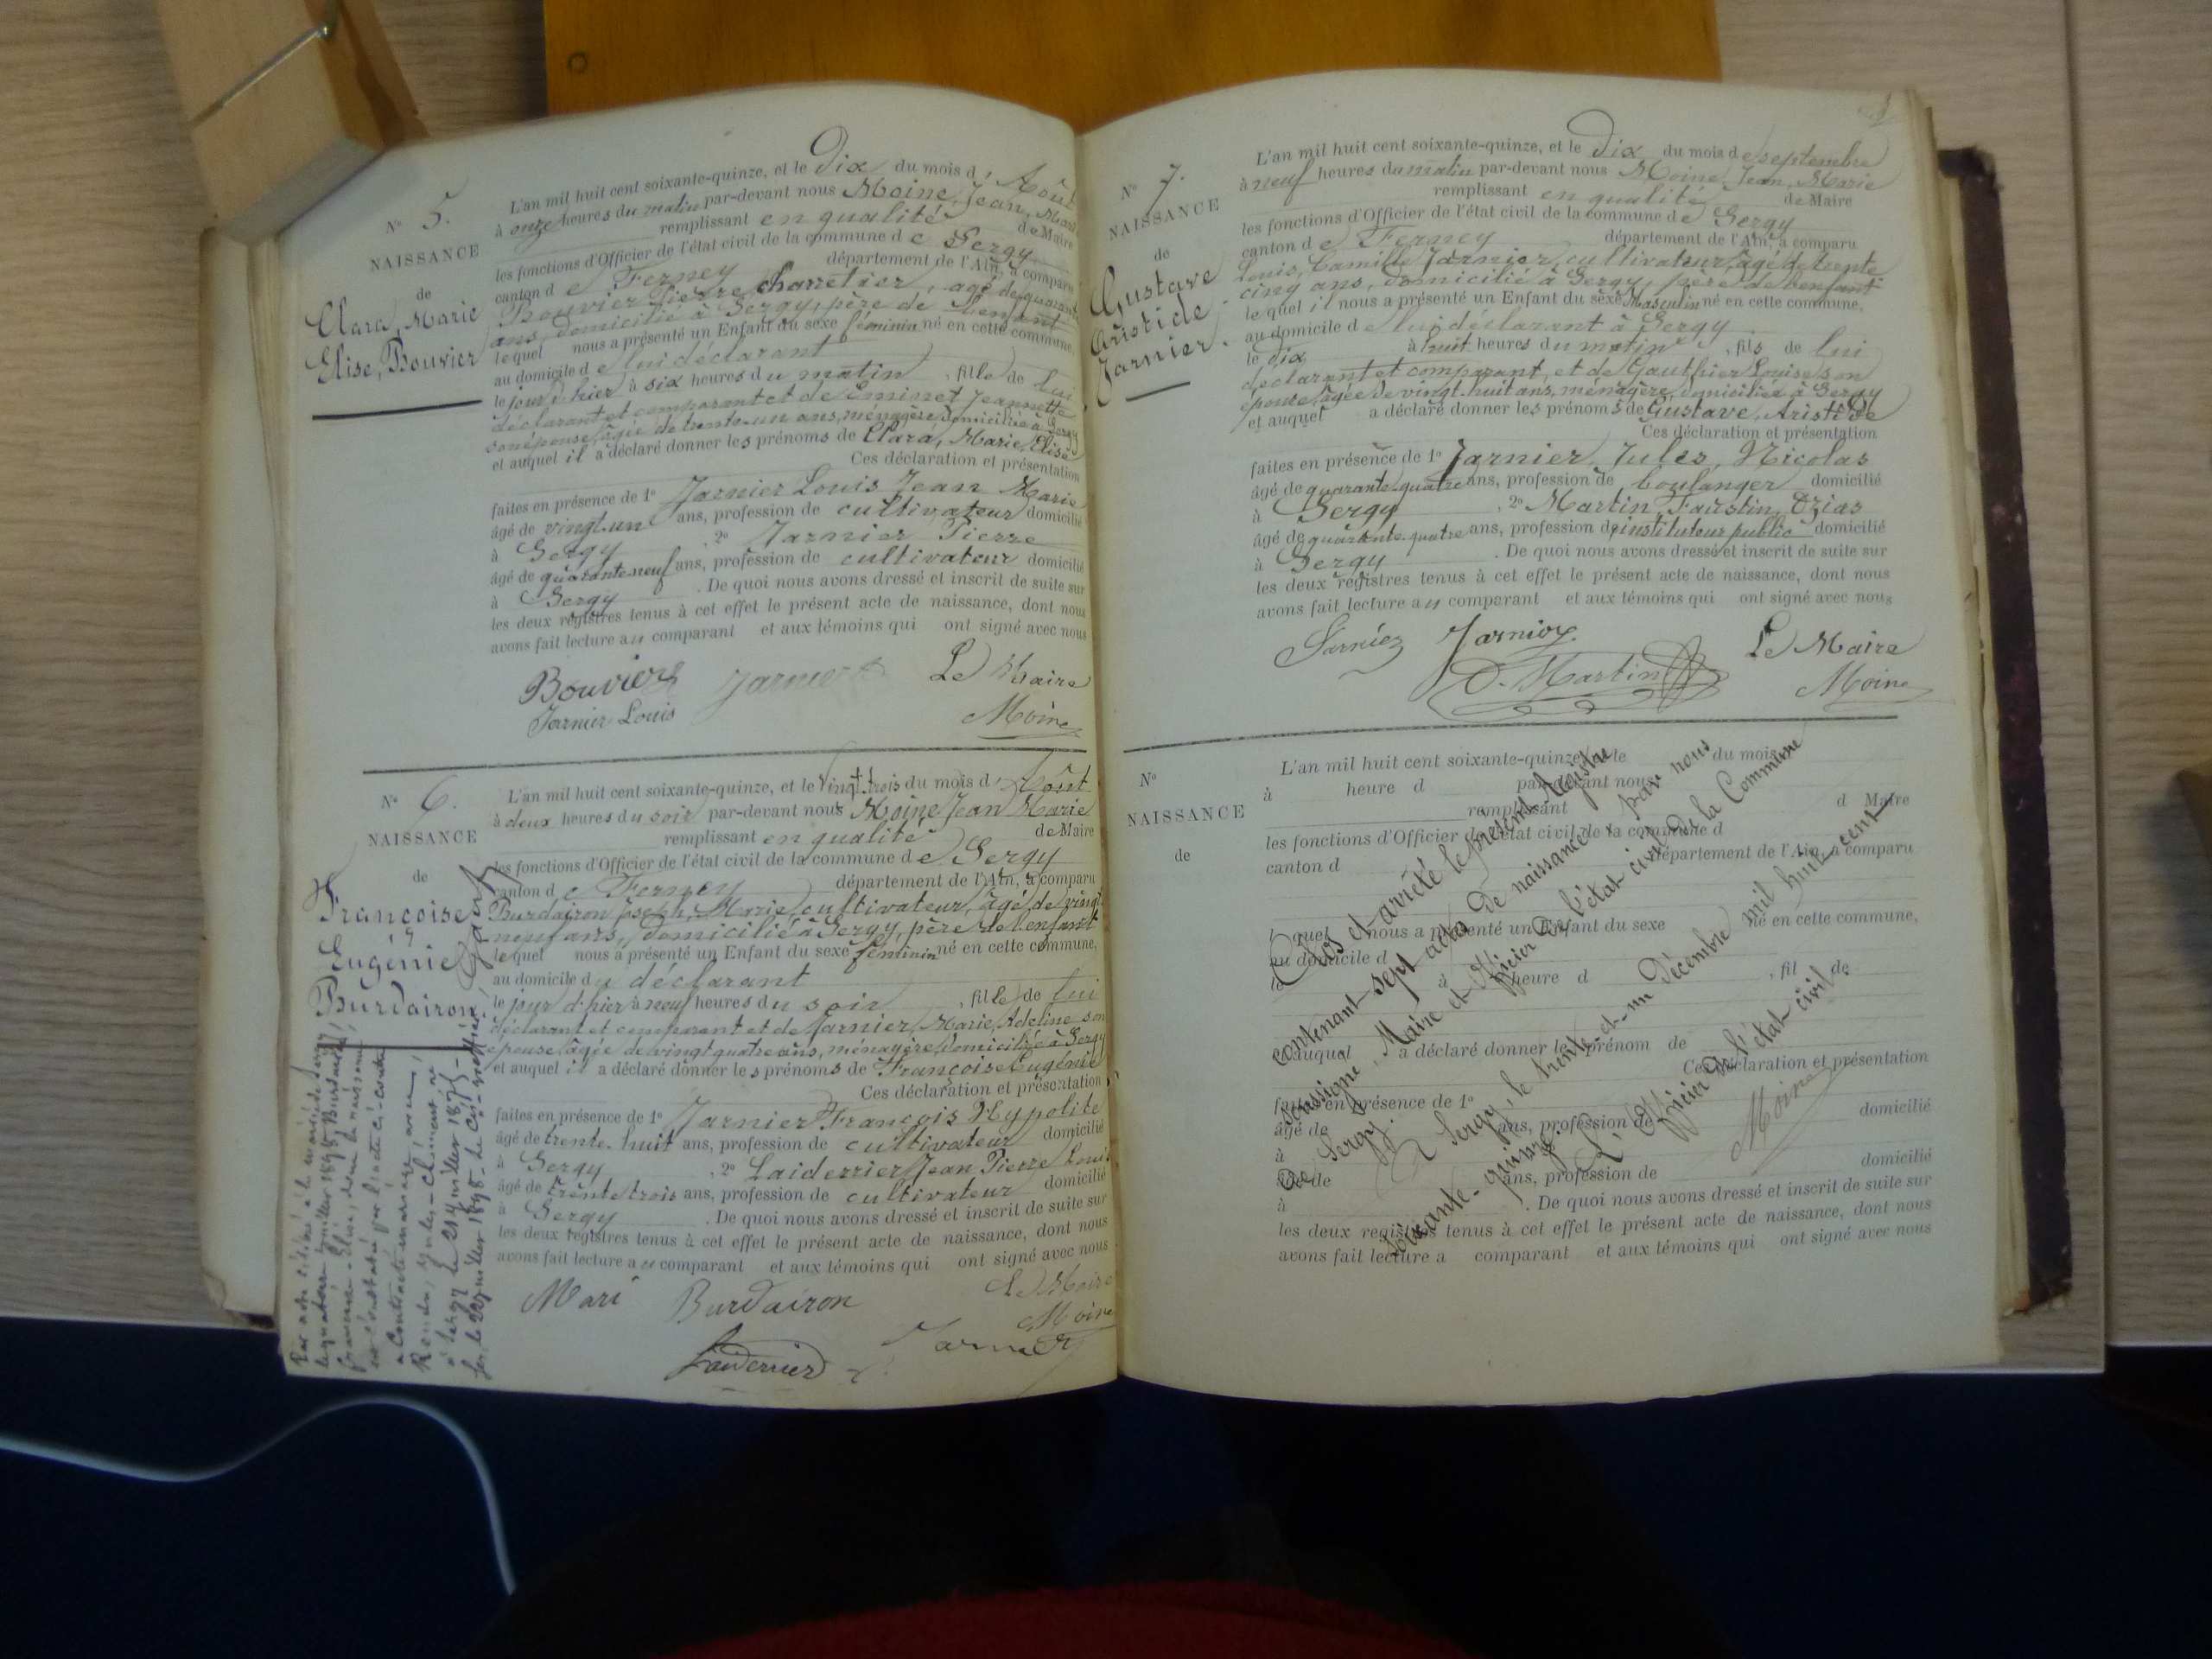 N° 5.
NAISSANCE
de
Clara, Marie
Elise, Bouvier
L'an mil huit cent soixante-quinze, et le Dix du mois d'Août
à onze heures du matin par-devant nous Moine, Jean, Marie
remplissant en qualité de Maire
les fonctions d'Officier de l'état civil de la commune de Sergy
canton de Ferney département de l'Ain, a comparu
Bouvier Pierre charretier, âgé de quarante
ans, domicilié à Sergy, père de l'enfant
lequel nous a présenté un Enfant du sexe féminin né en cette commune,
au domicile de lui déclarant
le jour d'hier à six heures du matin, fille de lui
déclarant et comparant et de Eminet Jeannette
son épouse, âgée de trente-un ans, ménagère, domiciliée à Sergy
et auquel il a déclaré donner les prénoms de Clara, Marie, Elise
Ces déclaration et présentation
faites en présence de 1° Jarnier Louis Jean Marie
âgé de vingt-un ans, profession de cultivateur domicilié
à Sergy, 2° Jarnier Pierre
âgé de quarante neuf ans, profession de cultivateur domicilié
à Sergy. De quoi nous avons dressé et inscrit de suite sur
les deux registres tenus à cet effet le présent acte de naissance, dont nous
avons fait lecture au comparant et aux témoins qui ont signé avec nous
Bouvier Jarnier Le Maire
Jarnier Louis Moine
N° 6.
NAISSANCE
de
Françoise
Eugénie
Burdairon
L'an mil huit cent soixante-quinze, et le Vingt-trois du mois d'Août
à deux heures du soir par-devant nous Moine Jean Marie
remplissant en qualité de Maire
les fonctions d'Officier de l'état civil de la commune de Sergy
canton de Ferney département de l'Ain, a comparu
Burdairon Joseph, Marie, cultivateur, âgé de vingt
neuf ans, domicilié à Sergy, père de l'enfant
lequel nous a présenté un Enfant du sexe féminin né en cette commune,
au domicile du déclarant
le jour d'hier à neuf heures du soir, fille de lui
déclarant et comparant et de Jarnier, Marie, Adeline son
épouse, âgée de vingt quatre ans, ménagère, domiciliée à Sergy
et auquel il a déclaré donner les prénoms de Françoise Eugénie
Ces déclaration et présentation
faites en présence de 1° Jarnier François Hypolite
âgé de trente-huit ans, profession de cultivateur domicilié
à Sergy, 2° Laiderrier Jean Pierre Louis
âgé de trente trois ans, profession de cultivateur domicilié
à Sergy. De quoi nous avons dressé et inscrit de suite sur
les deux registres tenus à cet effet le présent acte de naissance, dont nous
avons fait lecture au comparant et aux témoins qui ont signé avec nous
Mari Burdairon Le Maire
Moine
Laiderrier Jarnier
N° 7.
NAISSANCE
de
Gustave
Aristide
Jarnier.
L'an mil huit cent soixante-quinze, et le Dix du mois de septembre
à neuf heures du matin par-devant nous Moine, Jean, Marie
remplissant en qualité de Maire
les fonctions d'Officier de l'état civil de la commune de Sergy
canton de Ferney département de l'Ain, a comparu
Louis, Camille Jarnier, cultivateur, âgé de trente
cinq ans, domicilié à Sergy, père de l'enfant
lequel il nous a présenté un Enfant du sexe Masculin né en cette commune,
au domicile de lui déclarant à Sergy
le dix à huit heures du matin, fils de lui
déclarant et comparant, et de Gauthier Louise son
épouse, âgée de vingt-huit ans, ménagère, domiciliée à Sergy
et auquel a déclaré donner les prénoms de Gustave, Aristide
Ces déclaration et présentation
faites en présence de 1° Jarnier, Jules, Nicolas
âgé de quarante-quatre ans, profession de boulanger domicilié
à Sergy, 2° Martin, Faustin, Ozias
âgé de quarante-quatre ans, profession d'instituteur public domicilié
à Sergy. De quoi nous avons dressé et inscrit de suite sur
les deux registres tenus à cet effet le présent acte de naissance, dont nous
avons fait lecture au comparant et aux témoins qui ont signé avec nous
Jarnier Jarnier Le Maire
O. Martin Moine
N°
NAISSANCE
de
L'an mil huit cent soixante-quinze, et le du mois
à heure d par-devant nous
remplissant d Maire
les fonctions d'Officier de l'état civil de la commune d
canton d département de l'Ain, a comparu
l quel nous a présenté un Enfant du sexe né en cette commune,
au domicile d
le à heure d , fil de
et auquel a déclaré donner le prénom de
Ces déclaration et présentation
faites en présence de 1°
âgé de ans, profession de domicilié
à
âgé de ans, profession de domicilié
à . De quoi nous avons dressé et inscrit de suite sur
les deux registres tenus à cet effet le présent acte de naissance, dont nous
avons fait lecture a comparant et aux témoins qui ont signé avec nous
Clos et arrêté le présent registre
contenant sept actes de naissances, par nous
soussigné, Maire et Officier de l'état civil de la Commune
de Sergy.
A Sergy, le trente-et-un Décembre mil huit cent
soixante-quinze.
L'Officier de l'état civil
Moine